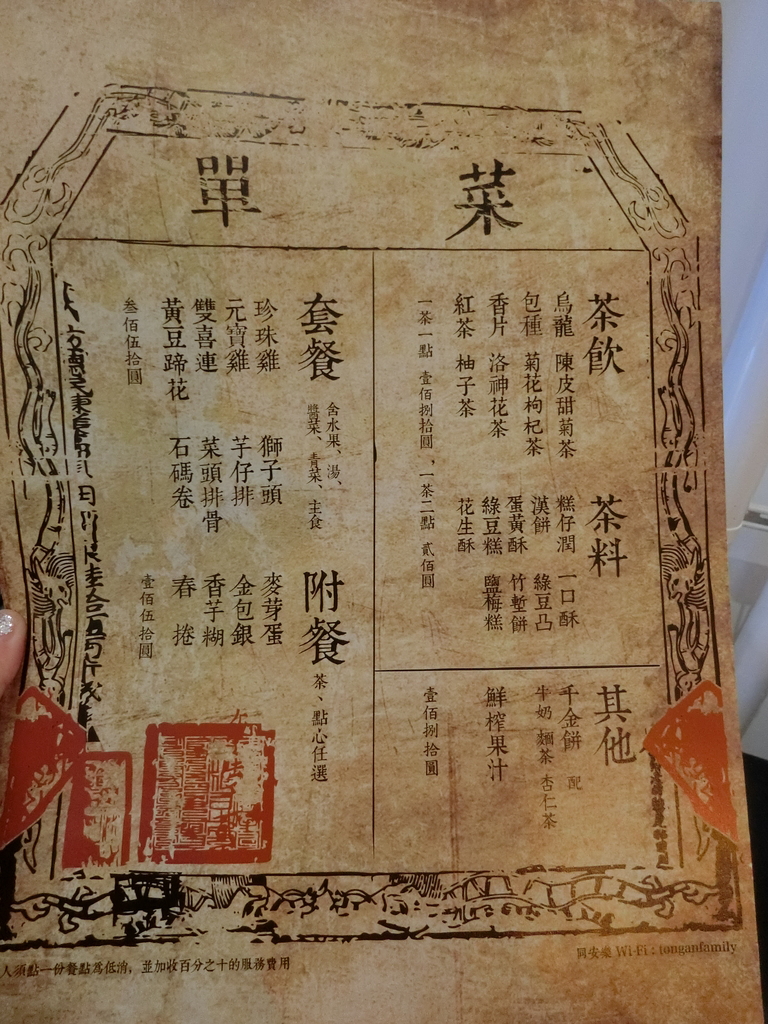 菜單
茶飲
烏龍 陳皮甜菊茶
包種 菊花枸杞茶
香片 洛神花茶
紅茶 柚子茶
一茶一點 壹佰捌拾圓，一茶二點 貳佰圓
茶料
糕仔潤 一口酥
漢餅 綠豆凸
蛋黃酥 竹塹餅
綠豆糕 鹽梅糕
花生酥
其他
千金餅 配
牛奶 麵茶 杏仁茶
鮮榨果汁
壹佰捌拾圓
套餐
含水果、湯、
醬菜、青菜、主食
珍珠雞 獅子頭
元寶雞 芋仔排
雙喜連 菜頭排骨
黃豆蹄花 石碼卷
叁佰伍拾圓
附餐
茶、點心任選
麥芽蛋
金包銀
香芋糊
春捲
壹佰伍拾圓
人須點一份餐點為低消，並加收百分之十的服務費用
同安樂 Wi-Fi : tonganfamily